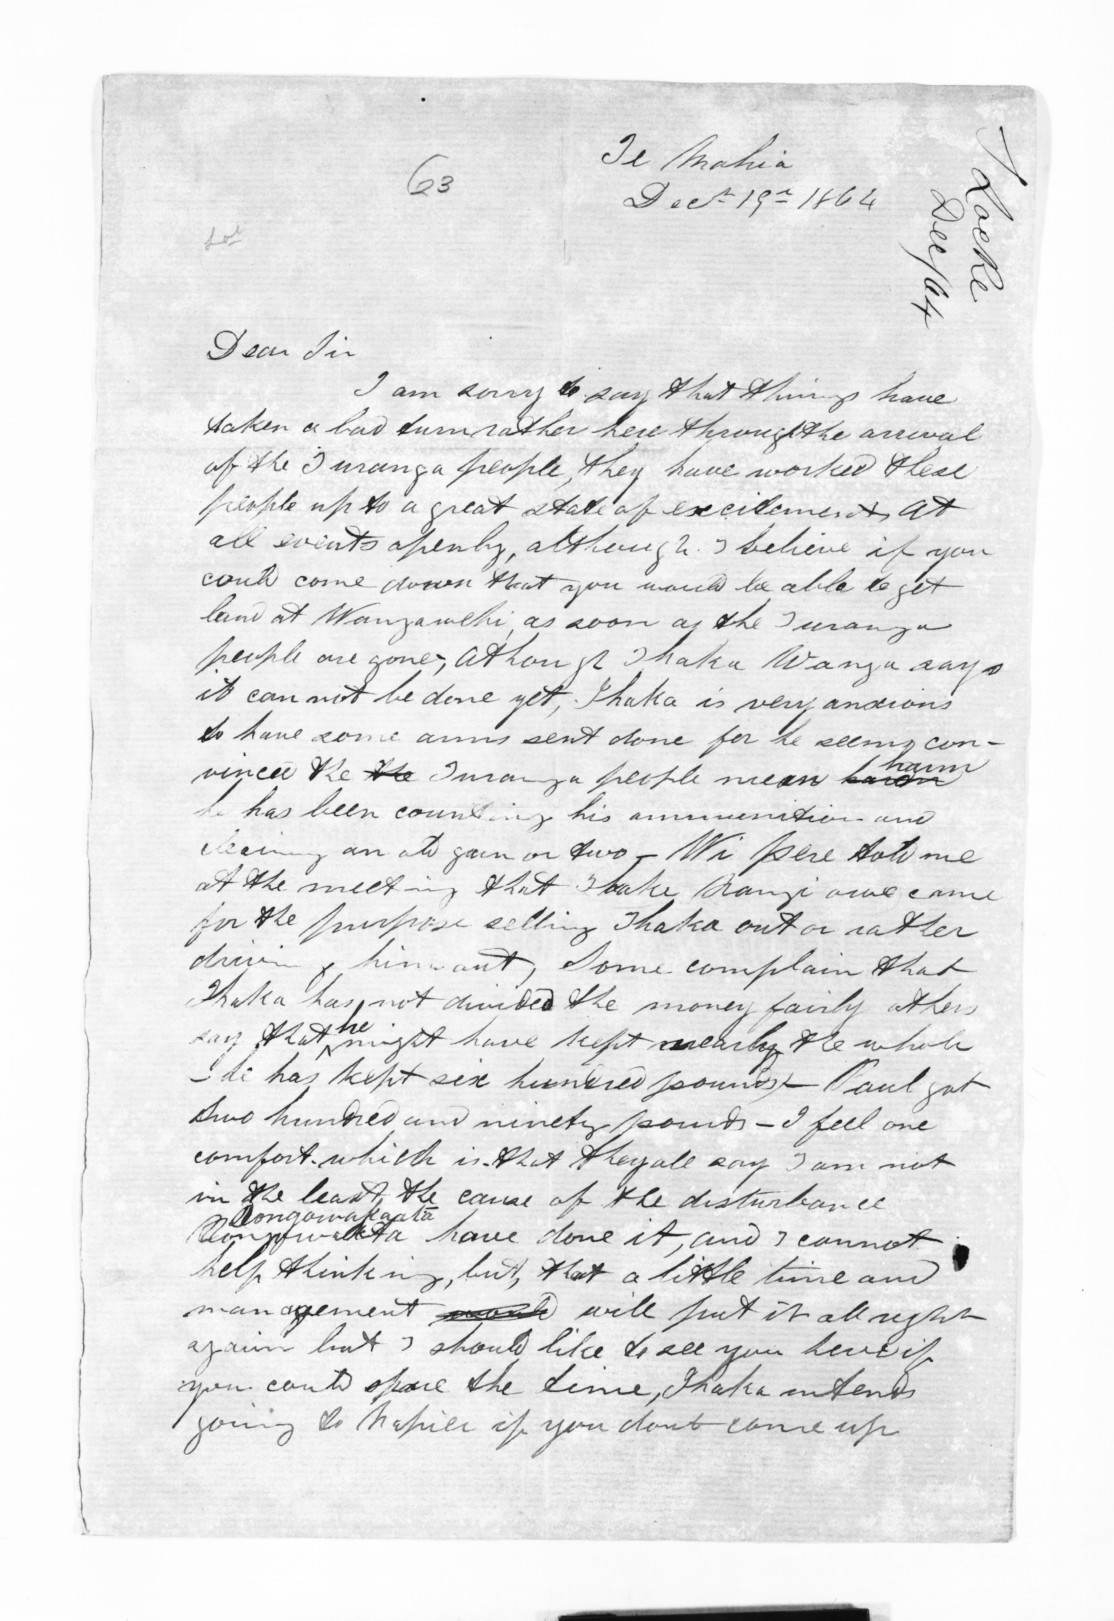 Te Mahia
Decr 19th 1864
63
Locke
Dec/64
Dear Sir
I am sorry to say that things have
taken a bad turn rather here through the arrival
of the Turanga people, they have worked these
people up to a great state of excitement, at
all events openly, although I believe if you
could come down that you would be able to get
land at Wangawehi, as soon as the Turanga
people are gone, Athough Ihaka Wanga says
it can not be done yet, Ihaka is very anxious
to have some arms sent done for he seems con-
vinced the the Turanga people mean harm
he has been counting his ammunition and
cleaning an old gun or two - Wi Pere told me
at the meeting that Rangi came
for the purpose selling Ihaka out or rather
driving him out, Some complain that
Ihaka has not divided the money fairly others
say that he might have kept nearly the whole
- He has kept six hundred pounds - Paul got
two hundred and ninety pounds - I feel one
comfort which is that they all say I am not
in the least the cause of the disturbance
Rongowakaata
have done it, and I cannot
help thinking, but, that a little time and
management would will put it all right
again but I should like to see you here if
you could spare the time, Ihaka intends
going to Napier if you dont come up